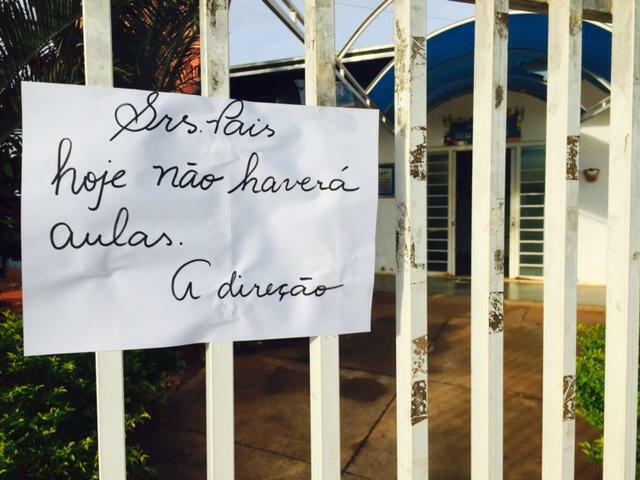 Srs. Pais
hoje não haverá
aulas.
A direção